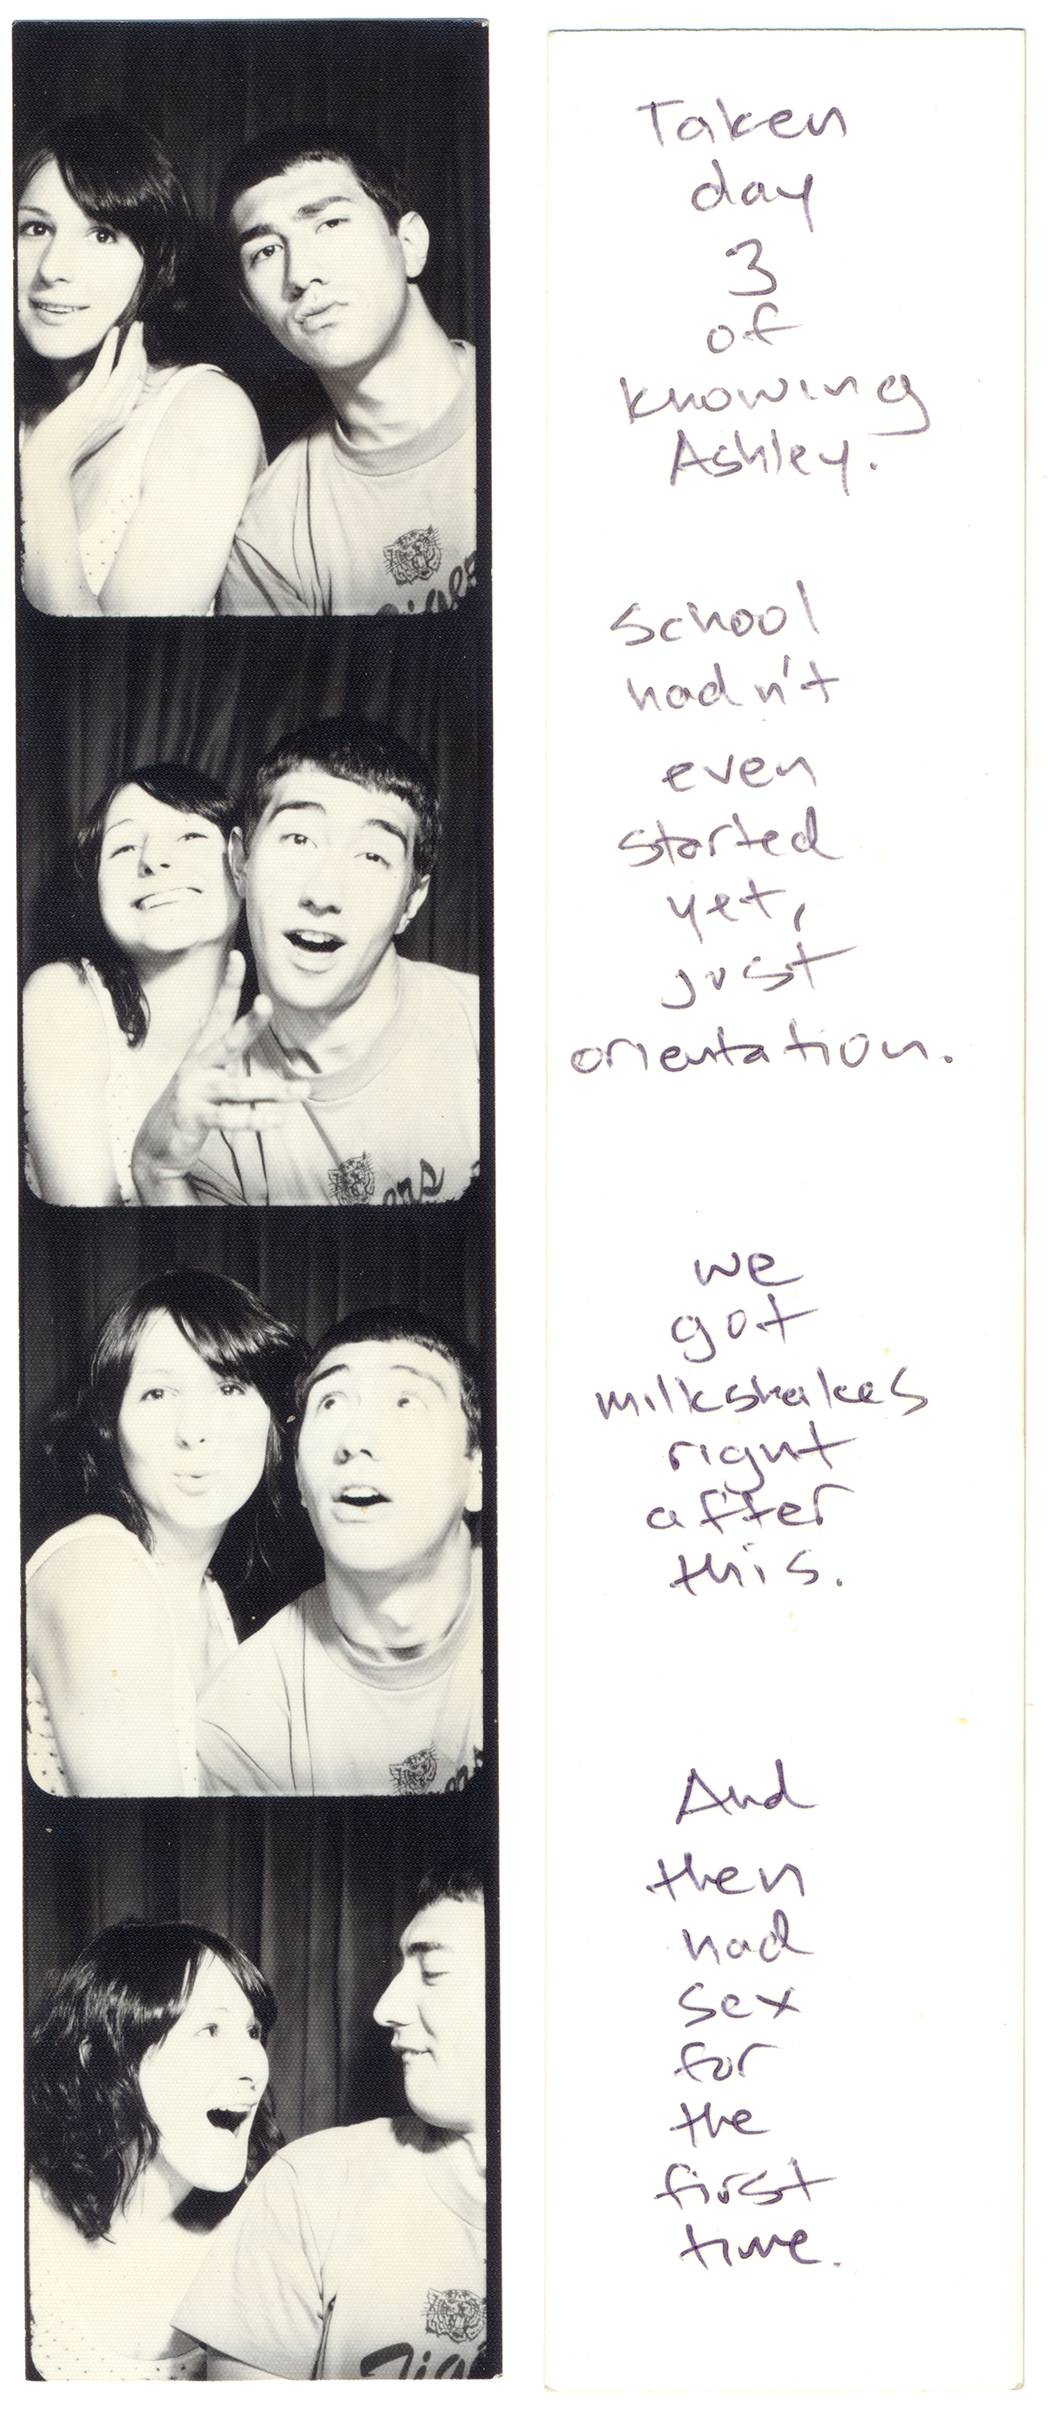 Taken
day
3
of
knowing
Ashley.
school
hadn't
even
started
yet,
just
orientation.
we
got
milkshakes
right
after
this.
And
then
had
sex
for
the
first
time.
Tigers
ers
Tige